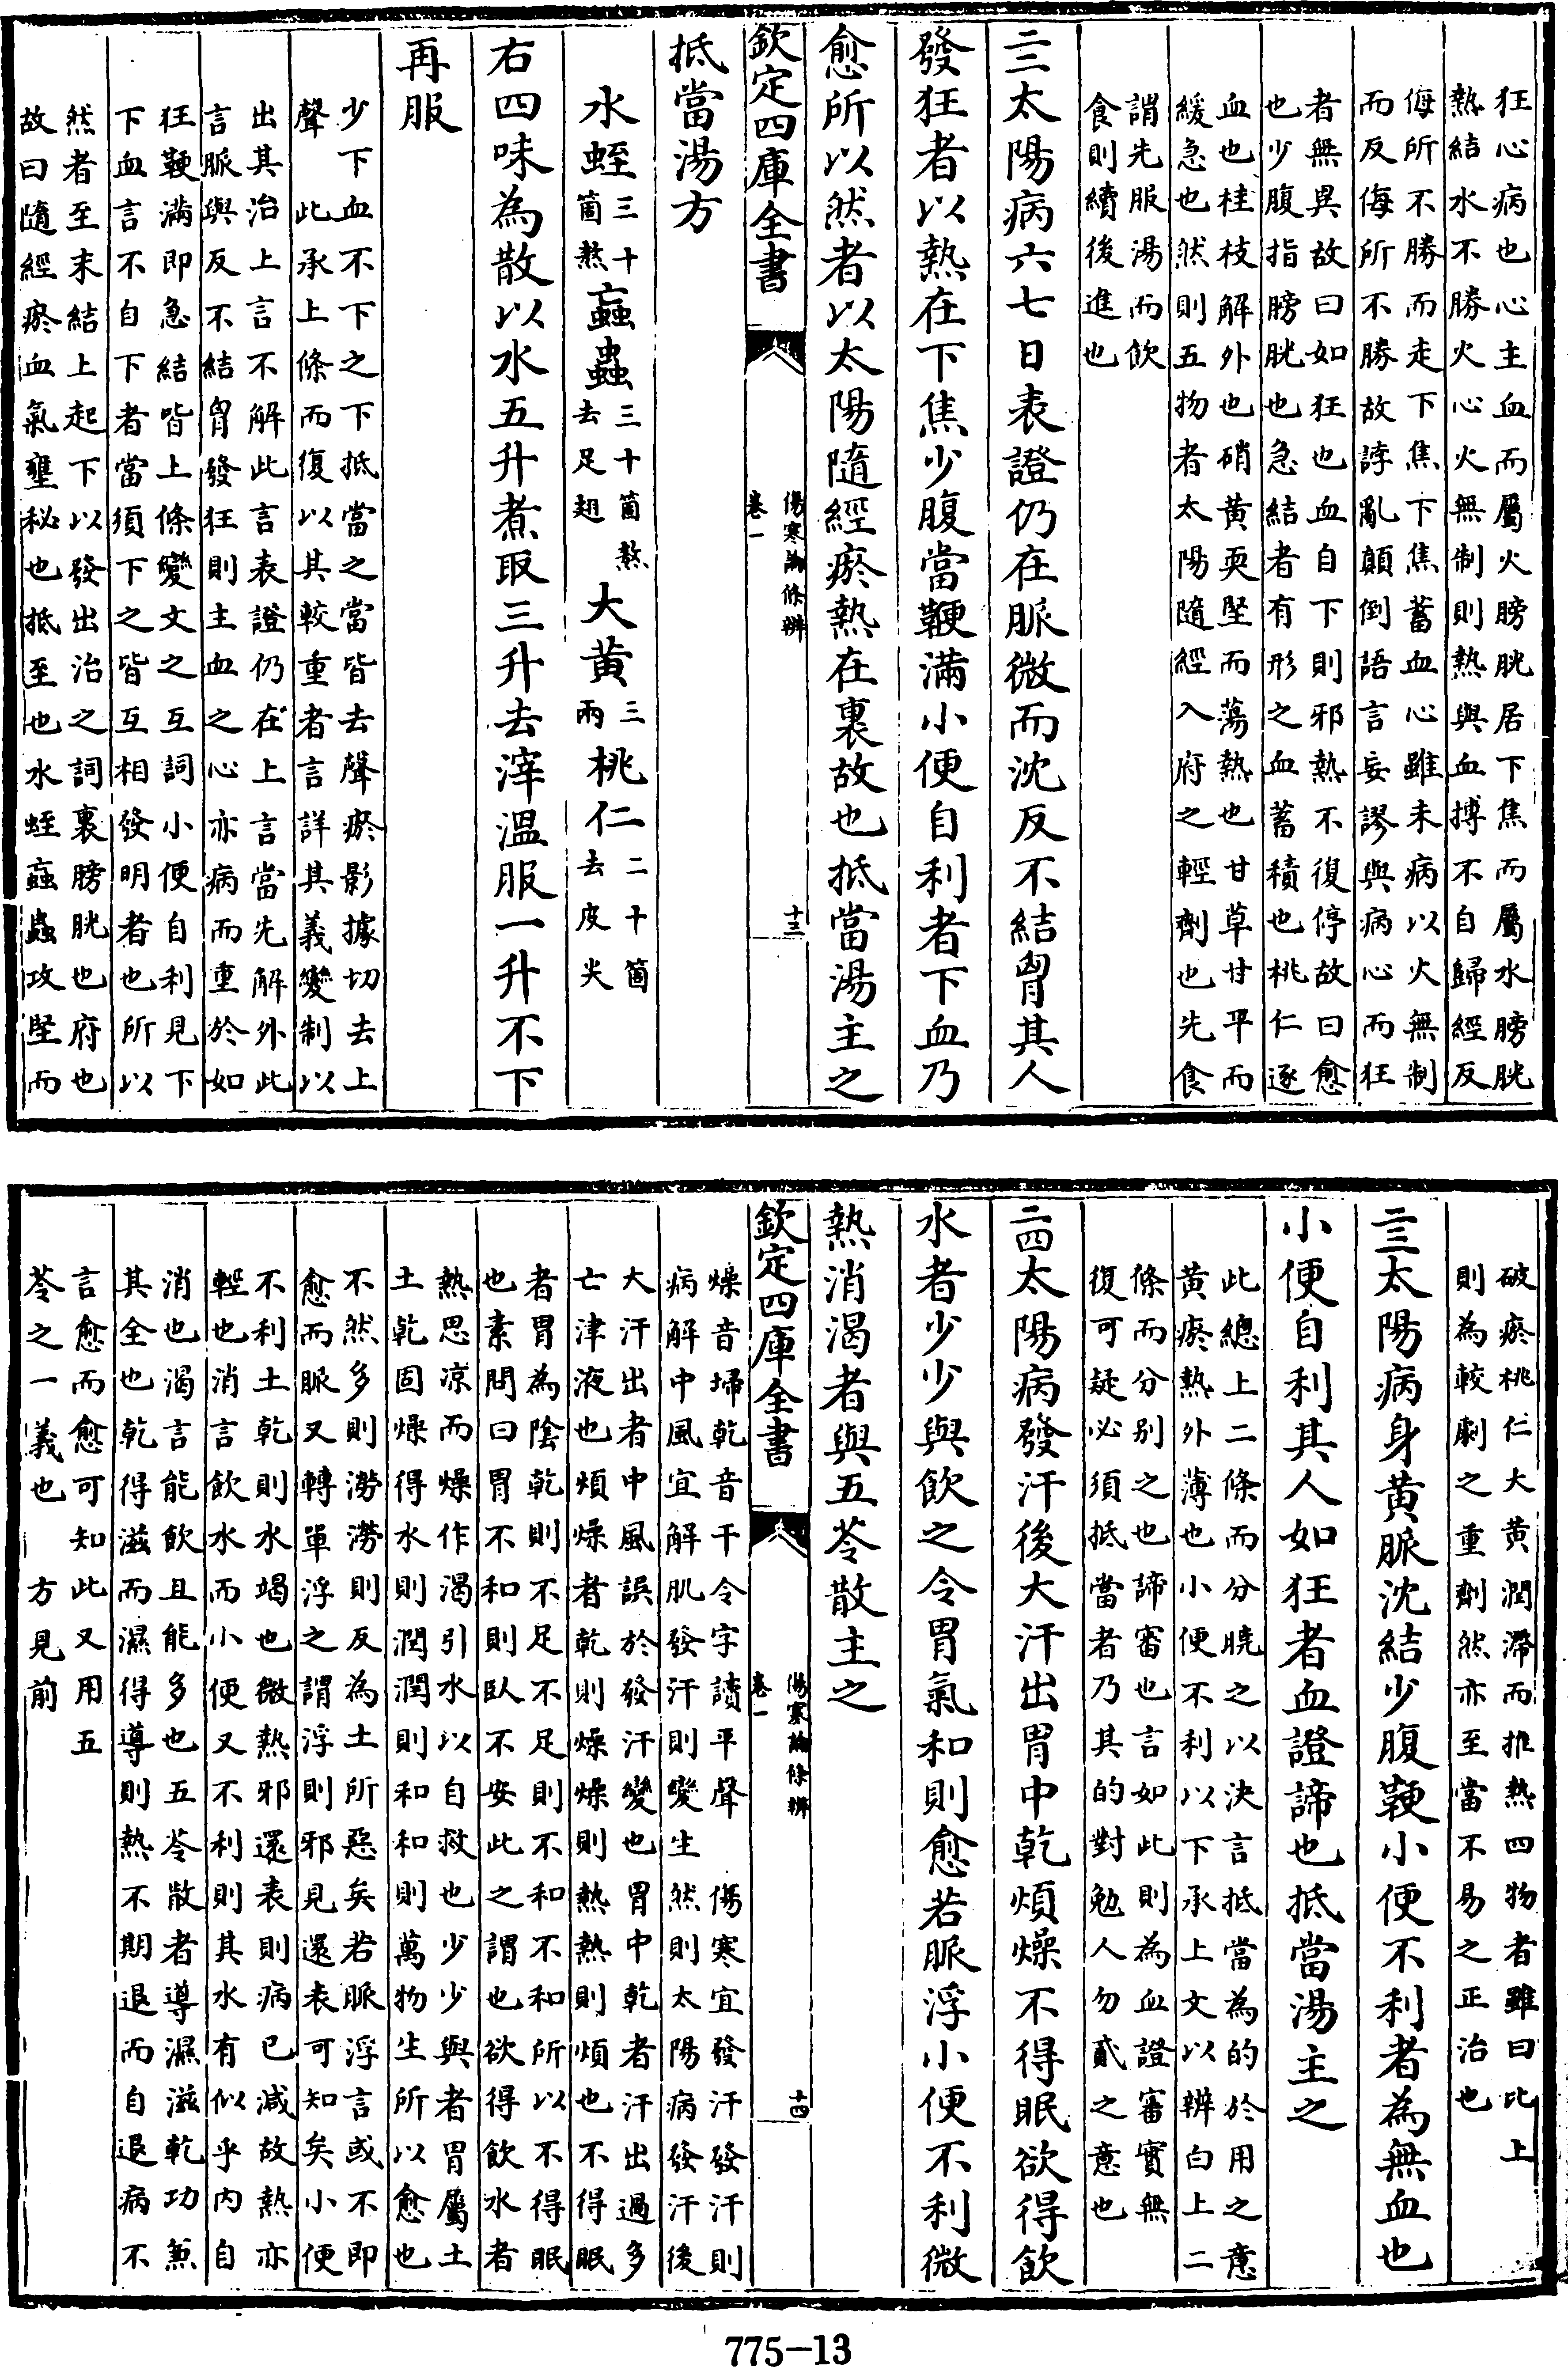 狂心病也心主血而屬火膀胱居下焦而屬水膀胱
熱結水不勝火心火無制則熱與血搏不自歸經反
侮所不勝而走下焦下焦蓄血心雖未病以火無制
而反侮所不勝故誖亂顛倒語言妄謬與病心而狂
者無異故曰如狂也血自下則邪熱不復停故曰愈
也少腹指膀胱也急結者有形之血蓄積也桃仁逐
血也桂枝解外也硝黃耎堅而蕩熱也甘草甘平而
緩急也然則五物者太陽隨經入府之輕劑也先食
謂先服湯而飲
食則續後進也
二三太陽病六七日表證仍在脈微而沈反不結胷其人
發狂者以熱在下焦少腹當鞕滿小便自利者下血乃
愈所以然者以太陽隨經瘀熱在裏故也抵當湯主之
欽定四庫全書
傷寒論條辨
卷一
十三
抵當湯方
水蛭三十箇熬䖟蟲三十箇熬去足翅大黃三兩桃仁二十箇去皮尖
右四味為散以水五升煮取三升去滓溫服一升不下
再服
少下血不下下之下抵當之當皆去聲瘀影據切去上
聲　此承上條而復以其較重者言詳其義變制以
出其治上言不解此言表證仍在上言當先解外此
言脈與反不結胷發狂則主血之心亦病而重於如
狂鞕滿即急結皆上條變文之互詞小便自利見下
下血言不自下者當須下之皆互相發明者也所以
然者至末結上起下以發出治之詞裏膀胱也府也
故曰隨經瘀血氣壅秘也抵至也水蛭䖟蟲攻堅而
破瘀桃仁大黃潤滯而推熱四物者雖曰比上
則為較劇之重劑然亦至當不易之正治也
二三太陽病身黃脈沈結少腹鞕小便不利者為無血也
小便自利其人如狂者血證諦也抵當湯主之
此總上二條而分曉之以決言抵當為的於用之意
黃瘀熱外薄也小便不利以下承上文以辨白上二
條而分別之也諦審也言如此則為血證審實無
復可疑必須抵當者乃其的對勉人勿貳之意也
二四太陽病發汗後大汗出胃中乾煩燥不得眠欲得飲
水者少少與飲之令胃氣和則愈若脈浮小便不利微
熱消渴者與五苓散主之
欽定四庫全書
傷寒論條辨
卷一
十四
燥音埽乾音干令字讀平聲　傷寒宜發汗發汗則
病解中風宜解肌發汗則變生　然則太陽病發汗後
大汗出者中風誤於發汗變也胃中乾者汗出過多
亡津液也煩燥者乾則燥燥則熱熱則煩也不得眠
者胃為陰乾則不足不足則不和不和所以不得眠
也素問曰胃不和則臥不安此之謂也欲得飲水者
熱思凉而燥作渴引水以自救也少少與者胃屬土
土乾固燥得水則潤潤則和和則萬物生所以愈也
不然多則澇澇則反為土所惡矣若脈浮言或不即
愈而脈又轉單浮之謂浮則邪見還表可知矣小便
不利土乾則水竭也微熱邪還表則病已減故熱亦
輕也消言飲水而小便又不利則其水有似乎內自
消也渴言能飲且能多也五苓散者導濕滋乾功兼
其全也乾得滋而濕得導則熱不期退而自退病不
言愈而愈可知此又用五
苓之一義也　方見前
775-13